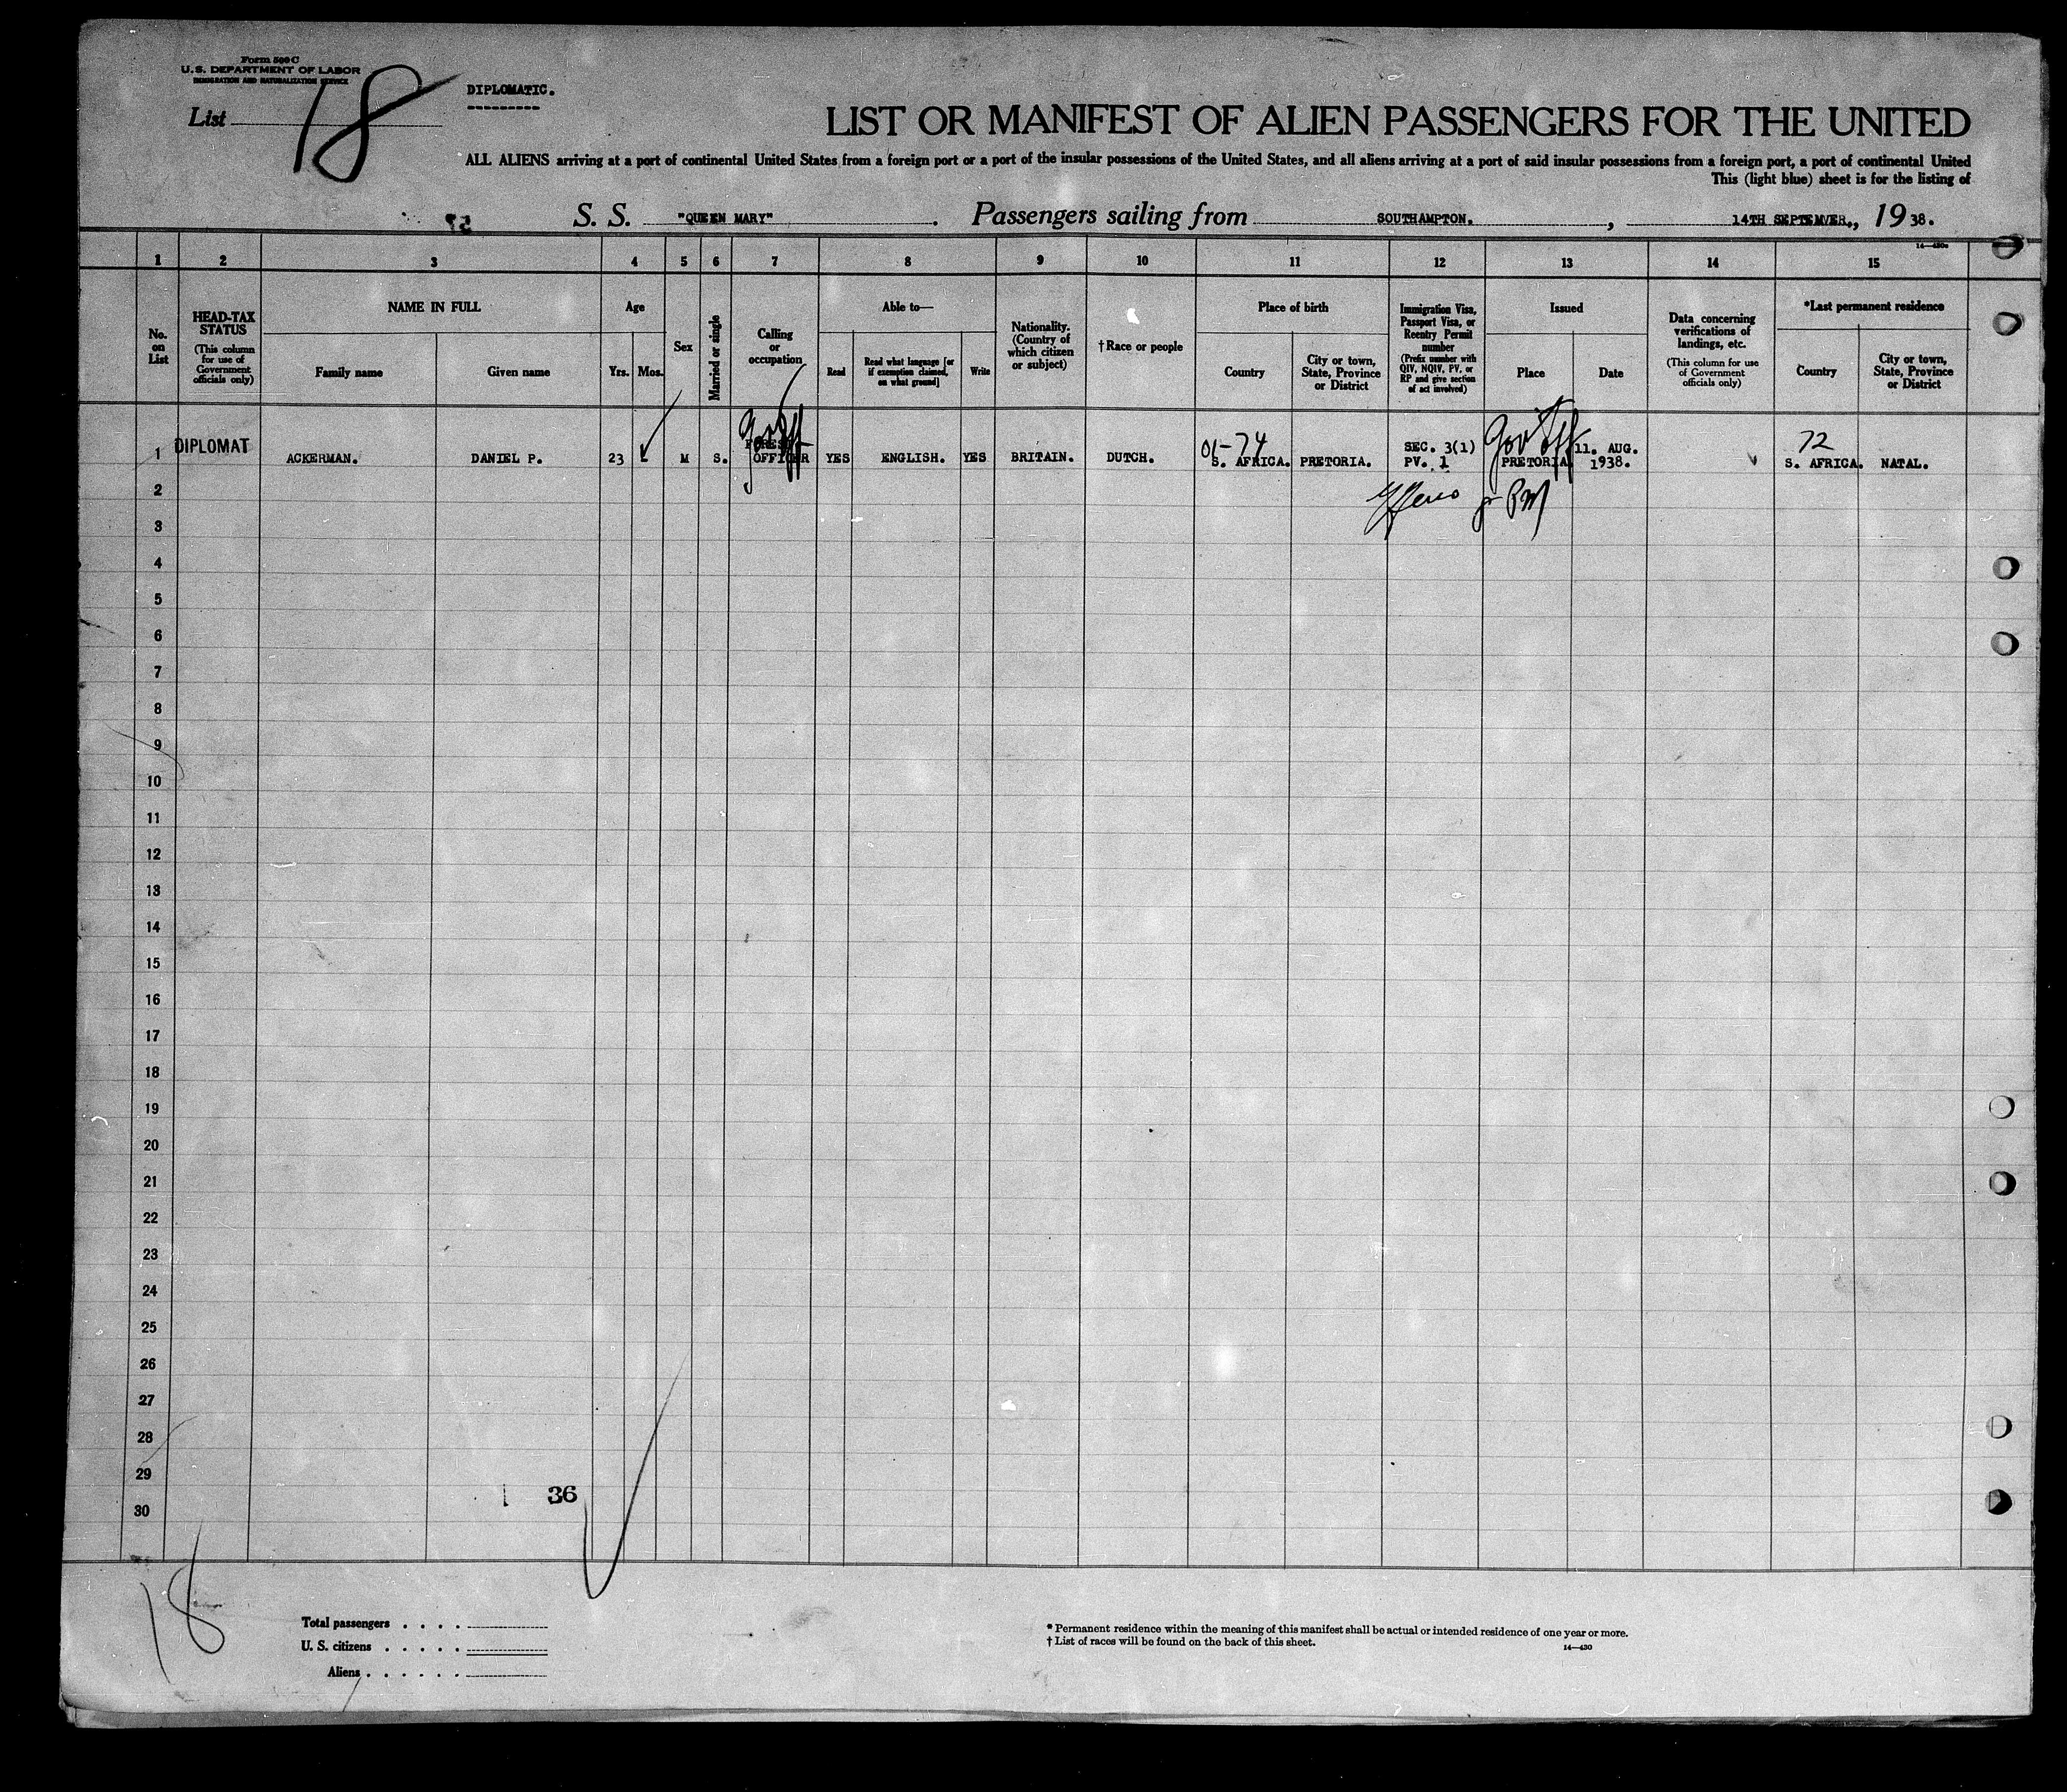 Form 500 C
U. S. DEPARTMENT OF LABOR
IMMIGRATION AND NATURALIZATION SERVICE
List 18
DIPLOMATIC.
LIST OR MANIFEST OF ALIEN PASSENGERS FOR THE UNITED
ALL ALIENS arriving at a port of continental United States from a foreign port or a port of the insular possessions of the United States, and all aliens arriving at a port of said insular possessions from a foreign port, a port of continental United
This (light blue) sheet is for the listing of
S. S. "QUEEN MARY". Passengers sailing from SOUTHAMPTON. , 14TH SEPTEMVER., 1938.
14—430a
1 2 3 4 5 6 7 8 9 10 11 12 13 14 15
No. on List
HEAD-TAX STATUS
(This column for use of Government officials only)
NAME IN FULL
Family name
Given name
Age
Yrs. Mos.
Sex
Married or single
Calling or occupation
Able to—
Read
Read what language [or if exemption claimed, on what ground]
Write
Nationality. (Country of which citizen or subject)
† Race or people
Place of birth
Country
City or town, State, Province or District
Immigration Visa, Passport Visa, or Reentry Permit number
(Prefix number with QIV, NQIV, PV, or RP and give section of act involved)
Issued
Place
Date
Data concerning verifications of landings, etc.
(This column for use of Government officials only)
*Last permanent residence
Country
City or town, State, Province or District
Gov Off
01-74
Gov't Off
72
1 DIPLOMAT ACKERMAN. DANIEL P. 23 M S. FOREST OFFICER YES ENGLISH. YES BRITAIN. DUTCH. S. AFRICA. PRETORIA. SEC. 3(1) PV. 1 PRETORIA 11. AUG. 1938. S. AFRICA. NATAL.
2
3
4
5
6
7
8
9
10
11
12
13
14
15
16
17
18
19
20
21
22
23
24
25
26
27
28
29
36
30
18
Total passengers . . . .
U. S. citizens . . . . .
Aliens . . . . . .
* Permanent residence within the meaning of this manifest shall be actual or intended residence of one year or more.
† List of races will be found on the back of this sheet.
14—430